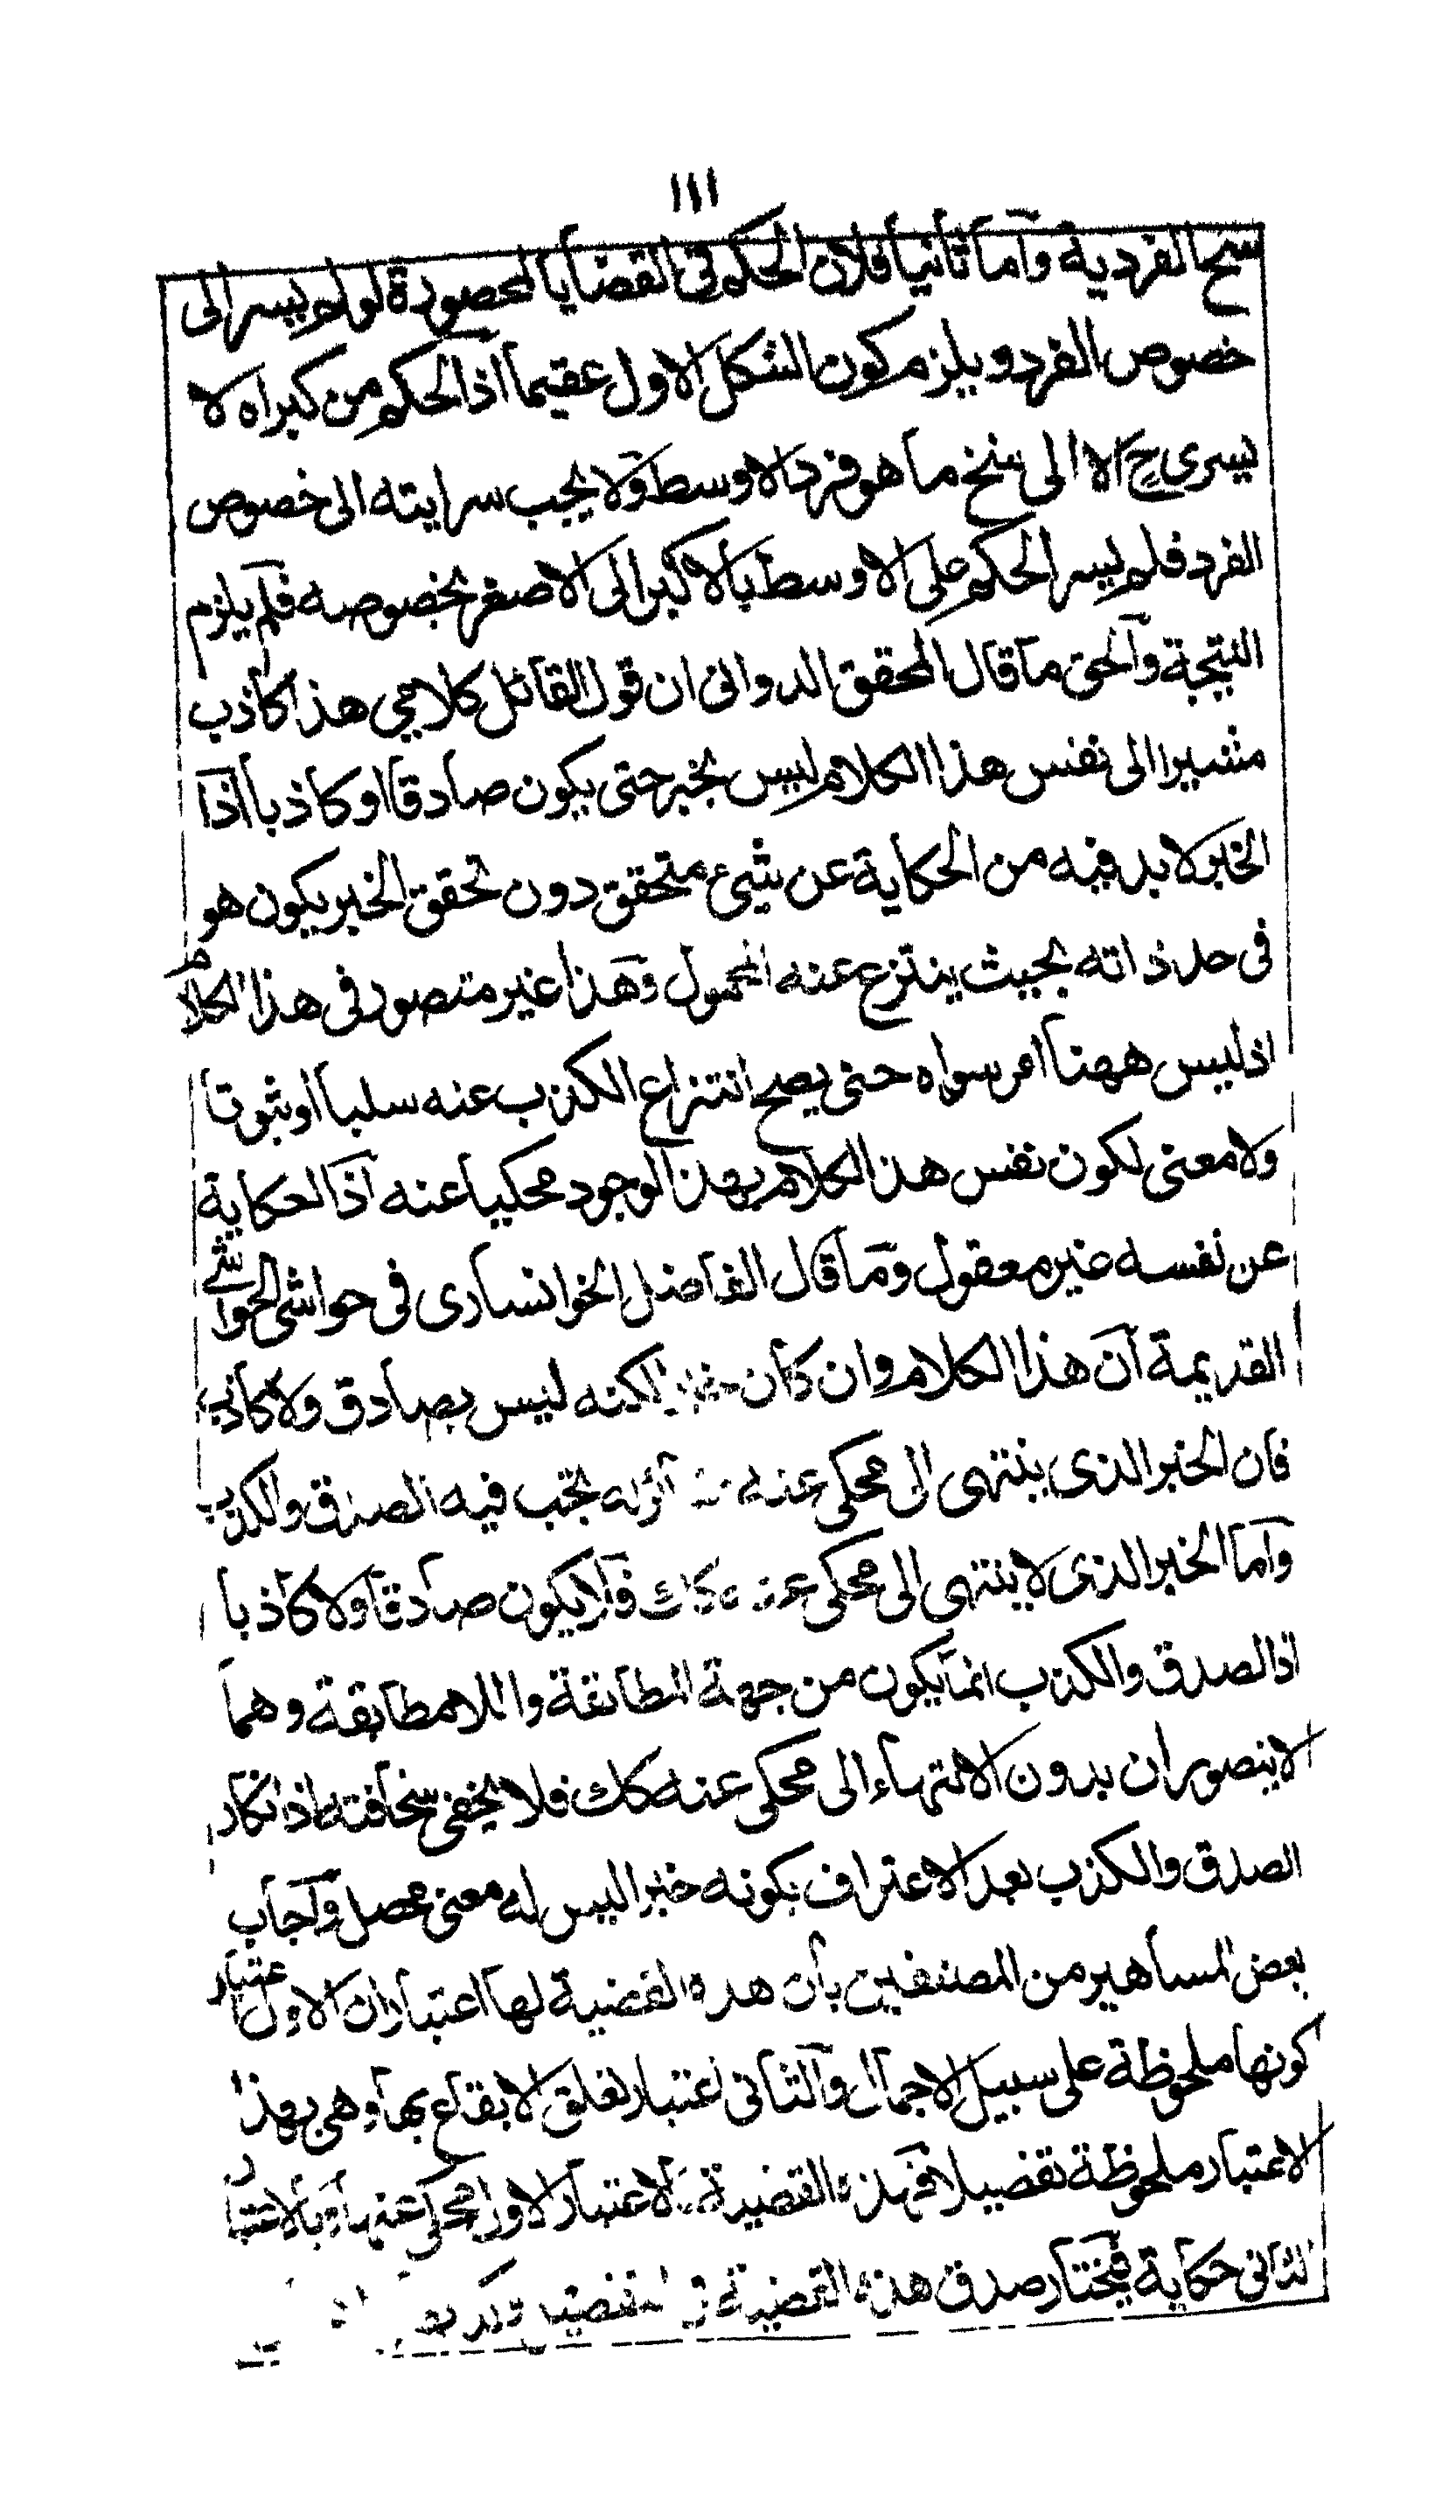 ١١١
سنح الفردية وآما ثانيا فلان الحكم فى القضايا المحصورة لو لم يسر الى
خصوص الفرد و يلزم كون الشكل الاول عقيما اذ الحكم من كبراه لا
يسرى ح الا الى سنخ ما هو فرد الاوسط ولا يجب سرايته الى خصوص
الفرد فلم يسر الحكم على الاوسط بالاكبر الى الاصغر بخصوصه فلم يلزم
النتيجة والحق ما قال المحقق الدوانى ان قول القائل كلامى هذا كاذب
مشيرا الى نفس هذا الكلام ليس بخبر حتى يكون صادقا او كاذبا اذ
الخبر لا بد فيه من الحكاية عن شىء متحقق دون تحقق الخبر يكون هو
فى حد ذاته بحيث ينتزع عنه المحمول وهذا غير متصور فى هذا الكلام
اذ ليس ههنا امر سواه حتى يصح انتزاع الكذب عنه سلبا او ثبوتا
ولا معنى لكون نفس هذا الكلام بهذا الوجود محكيا عنه اذ الحكاية
عن نفسه غير معقول وما قال الفاضل الخوانسارى فى حواشى الحواشى
القديمة ان هذا الكلام وان كان لكنه ليس بصادق ولا كاذب
فان الخبر الذى ينتهى الى محكى عنه يجب فيه الصدق والكذب
وآما الخبر الذى لا ينتهى الى محكى عنه كك فلا يكون صادقا ولا كاذبا
اذ الصدق والكذب انما يكون من جهة المطابقة واللامطابقة وهما
لا يتصوران بدون الانتهاء الى محكى عنه كك فلا يخفى سخافته اذ انكار
الصدق والكذب بعد الاعتراف بكونه خبرا ليس له معنى محصل وآجاب
بعض المشاهير من المصنفين بان هذه القضية لها اعتباران الاول اعتبار
كونها ملحوظة على سبيل الاجمال والثانى اعتبار تعلق الايقاع بها وهى بهذا
الاعتبار ملحوظة تفصيلا فهذه القضية بالاعتبار الاول محكى عنها وبالاعتبار
الثانى حكاية فيختار صدق هذه القضية